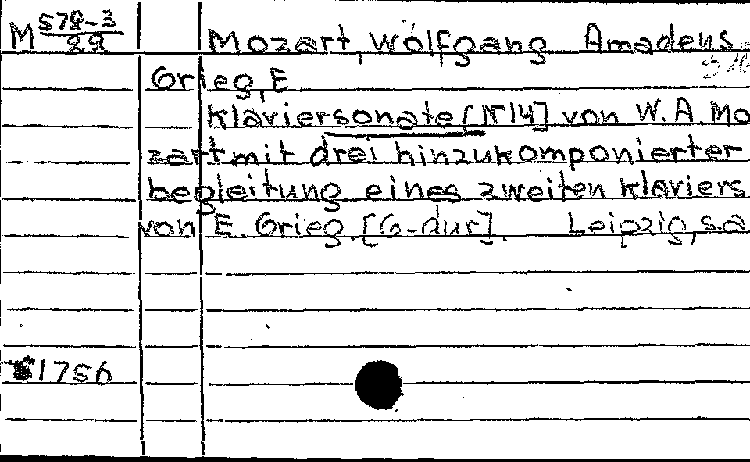 M 578-3/22 Mozart, Wolfgang Amadeus
Grieg, E
Klaviersonate [Nr14] von W.A. Mo
zart mit drei hinzukomponierter
begleitung eines zweiten Klaviers
von E. Grieg. [G-dur]. Leipzig, s.a
1756